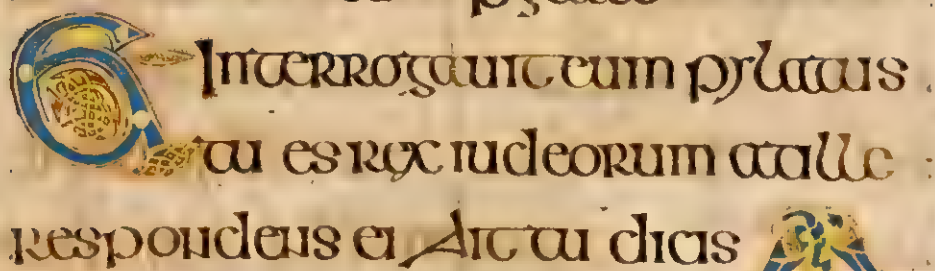 Et Interrogauit eum pylatus
tu es rex iudeorum at ille
respondens ei Ait tu dicis